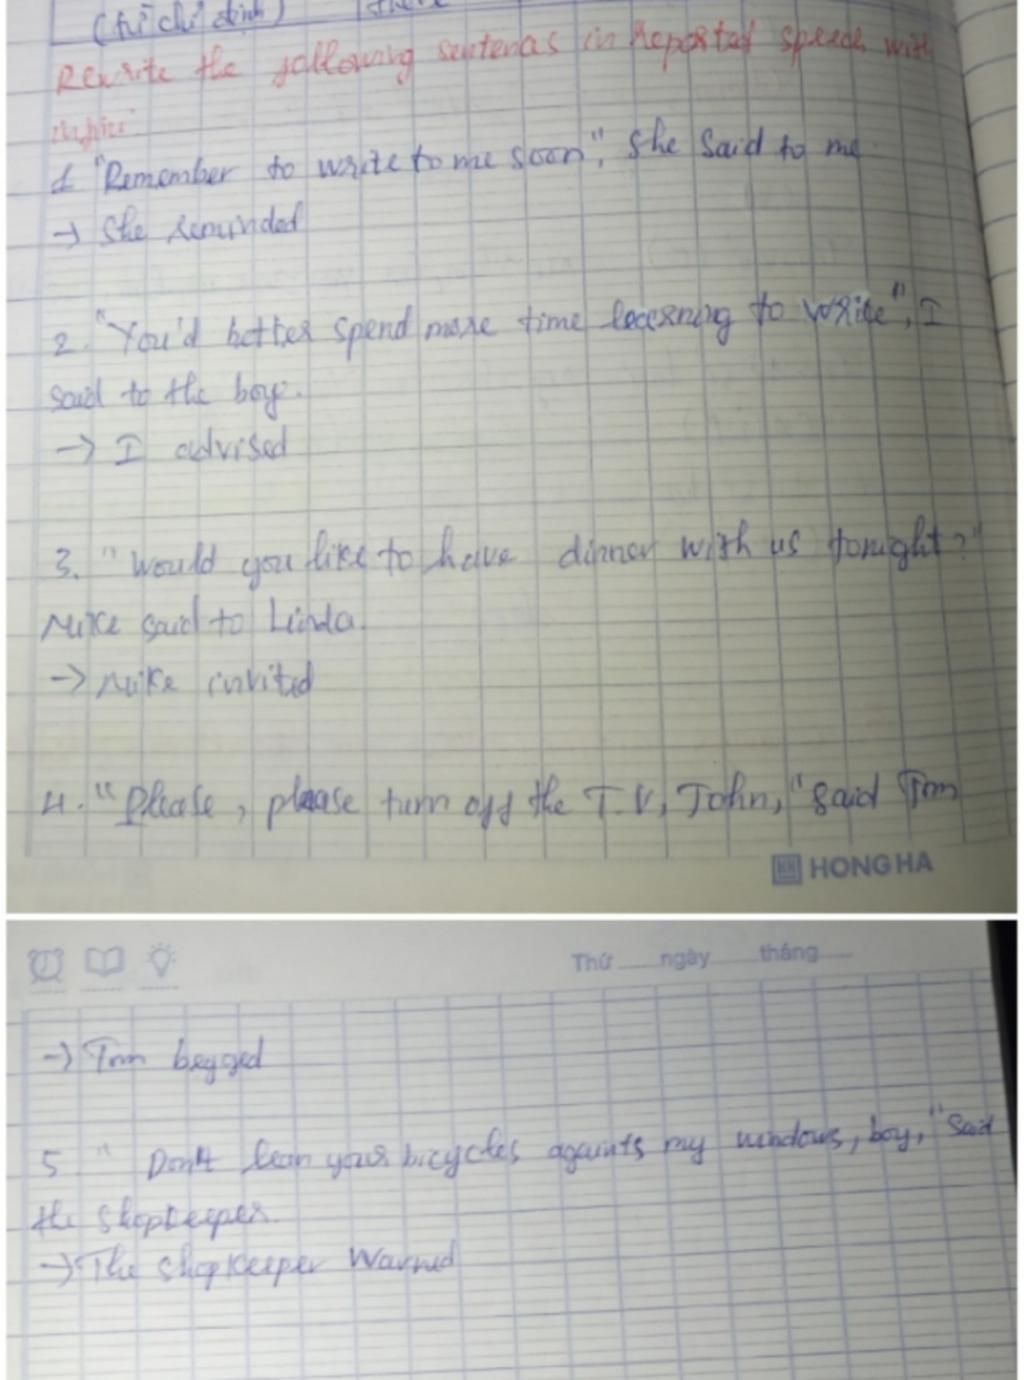 (từ chỉ định) there
Rewrite the following sentences in Reported speech with
1. "Remember to write to me soon", she said to me.
→ She reminded
2. "You'd better spend more time learning to write", I
said to the boy.
→ I advised
3. "Would you like to have dinner with us tonight?"
Mike said to Linda.
→ Mike invited
4. "Please, please turn off the T.V, John," said Tom
HH HONG HA
Thứ ngày tháng
→ Tom begged
5. "Don't lean your bicycles againts my windows, boy," said
the shopkeeper.
→ The shopkeeper warned